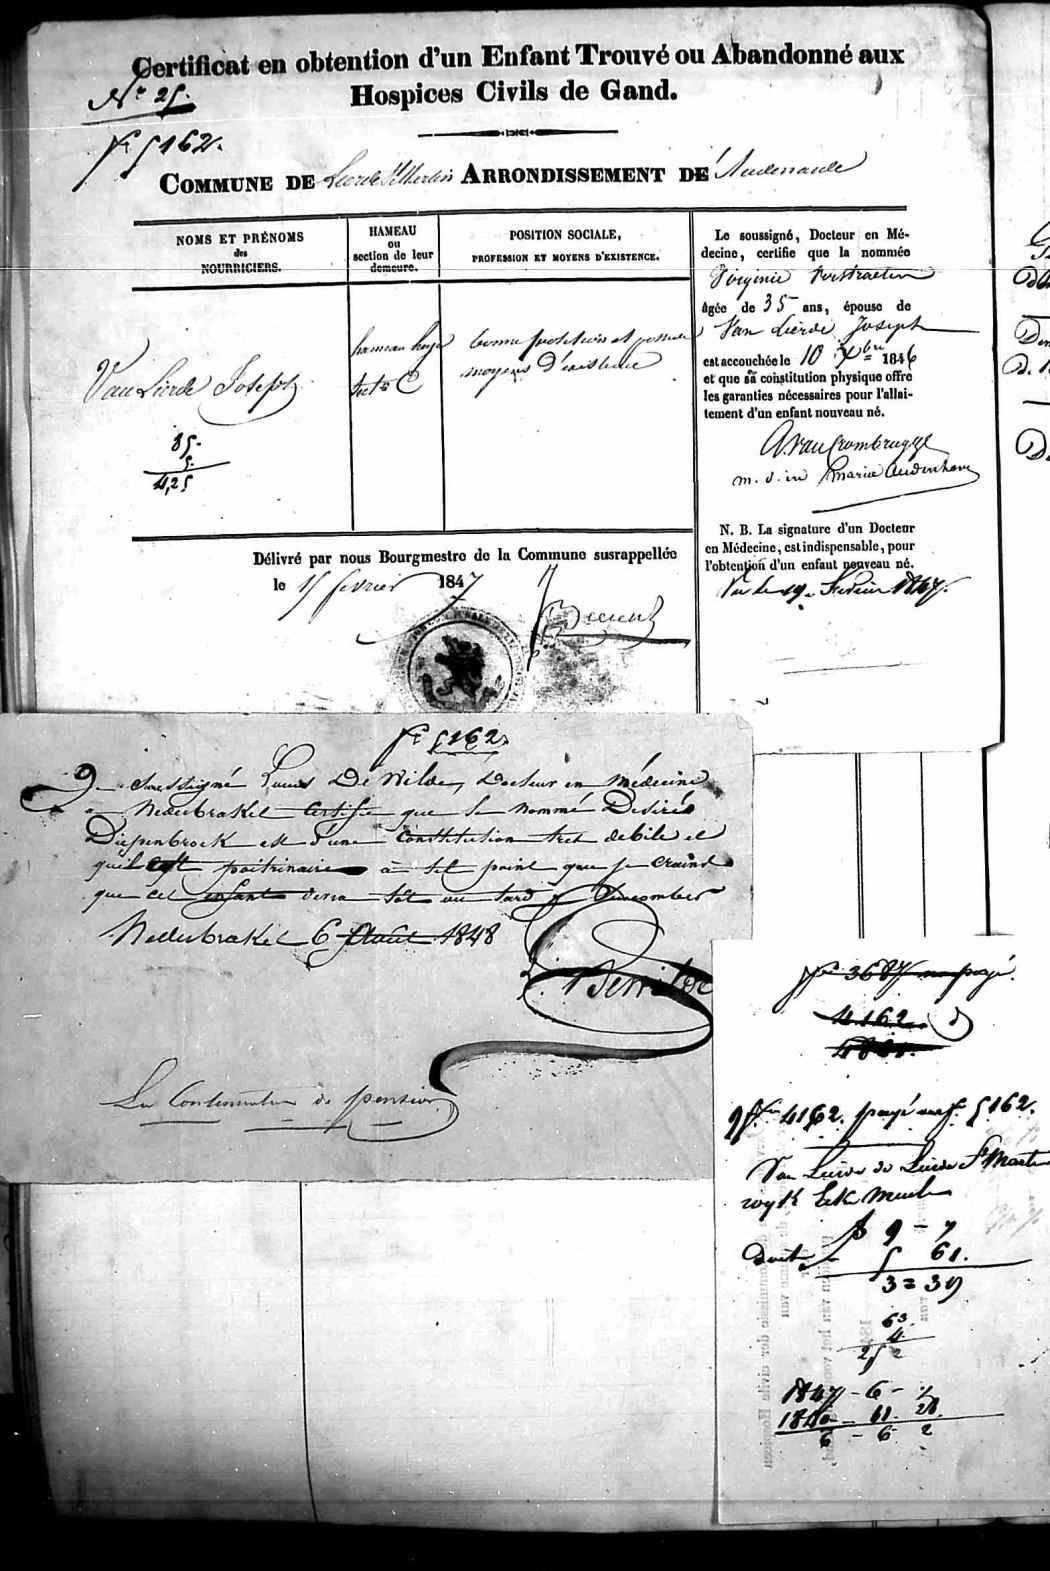 Certificat en obtention d'un Enfant Trouvé ou Abandonné aux
Hospices Civils de Gand.
N° 25.
f° 5162.
COMMUNE DE Lierde St Martin ARRONDISSEMENT DE Audenarde
NOMS ET PRÉNOMS
des
NOURRICIERS.
HAMEAU
ou
section de leur
demeure.
POSITION SOCIALE,
PROFESSION ET MOYENS D'EXISTENCE.
Van Lierde Joseph
85.
5.
4,25
hameau
sect. C
bonne et
moyens d'existence
Le soussigné, Docteur en Mé-
decine, certifie que la nommée
Virginie Verstraeten
âgée de 35 ans, épouse de
Van Lierde Joseph
est accouchée le 10 Xbre 1846
et que sa constitution physique offre
les garanties nécessaires pour l'allai-
tement d'un enfant nouveau né.
A. Van Crombrugge
m. d. in Maria Audenhove
N. B. La signature d'un Docteur
en Médecine, est indispensable, pour
l'obtention d'un enfant nouveau né.
Vu le 19 Février 1847.
Délivré par nous Bourgmestre de la Commune susrappellée
le 15 fevrier 1847
f° 5162.
Je Soussigné Louis De Wilde, Docteur en Médecine
a Nederbrakel certifie que le nommé Desiré
Diepenbroek est d'une constitution tres debile et
quil est poitrinaire a tel point que je crains
que cet enfant devra tot ou tard y succomber
Nederbrakel 6 Août 1848
L. De Wilde
La Continuation de pension
f° 3687 payé.
4162.
f° 4162. payé au f° 5162.
Van Lierde de Lierde St Martin
wyk Eeke Meulen
9 - 7
doit 5 61.
3 = 39
63.
4.
252
1847 - 6 -
1840 - 11. 28.
6 - 6 2